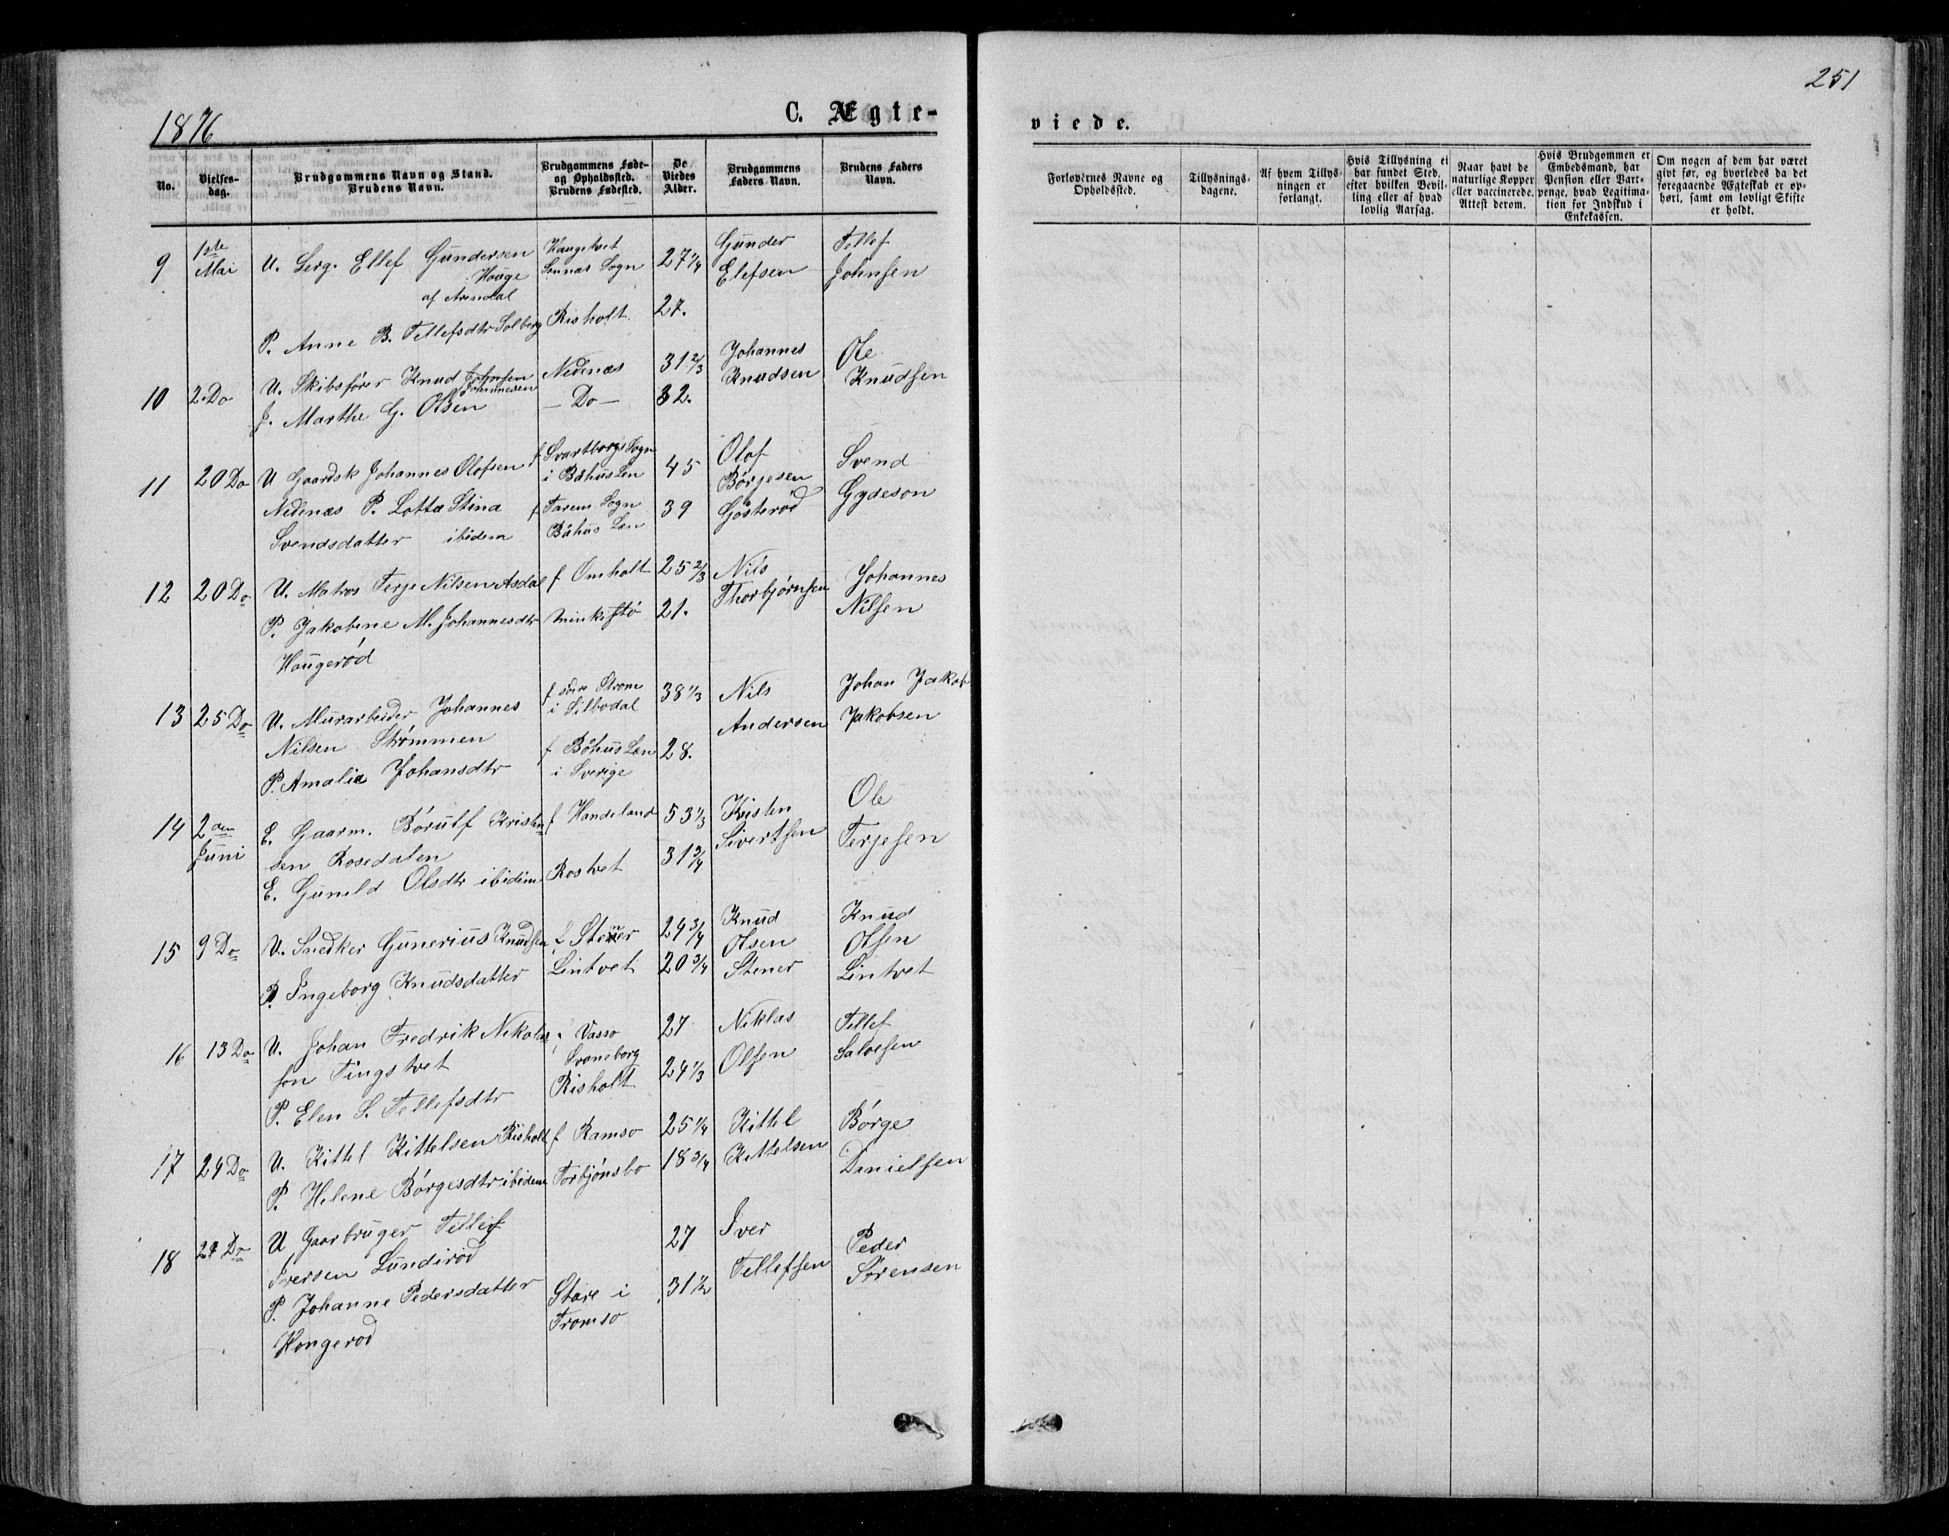 1876
C. Ægte-
No.
Vielses-
dag.
Brudgommens Navn og Stand.
Brudens Navn.
Brudgommens Føde-
og Opholdssted.
Brudens Fødested.
De
Viedes
Alder.
Brudgommens
Faders Navn.
Brudens Faders
Navn.
9
1ste
Mai
U. Serg. Ellef Gundersen
Houge
af Arendal
P. Anne B. Tellefsdtr Solberg
Haugetvet
Sannas Sogn
Risholt
27 1/4
27.
Gunder
Elefsen
Tellef
Johnsen
10
2. Do
U. Skibsfører Knud Johnsen
Johannesen
J. Marthe G. Olsen
Nedenæs
- Do -
31 2/3
32.
Johannes
Knudsen
Ole
Knudsen
11
20 Do
U Gaardsk Johannes Olofsen
Nedenæs P. Lotta Stina
Svendsdatter ibidem
f Svartborgs Sogn
i Båhus Len
f Tarem Sogn
Båhus Len
45
39
Olof
Børjesen
Gösterød
Svend
Gydeson
12
20 Do
U. Matros Terje Nilsen Asdal
P. Jakobine M. Johannesdtr
Haugerød
f Omholt
25 2/3
21.
Nils
Thorbjørnsen
Johannes
Nilsen
13
25 Do
U. Murarbeider Johannes
Nilsen Strømmen
P. Amalia Johansdtr
i Silbodal
f Båhus Len
i Sverige
38 1/3
28.
Nils
Andersen
Johan Jakob
Jakobsen
14
2den
Juni
E. Gaarm. Börulf Kristen
sen Rosedalen
E. Gunild Olsdtr ibidem
f Handeland
Rostvet
53 1/3
31 3/4
Kristen
Sivertsen
Ole
Terjesen
15
9 Do
U. Snedker Gunerius Knudsen
P. Ingeborg Knudsdatter
Stener
Lintvet
24 3/4
20 3/4
Knud
Olsen
Stener
Knud
Olsen
Lintvet
16
13 Do
U. Johan Fredrik Nikolas
son Tingstvet
P. Elen S. Tellefsdtr
Vasso
Svaneborg
Risholt
27
24 1/3
Niklas
Olsen
Tellef
Salvesen
17
24 Do
U. Kittel Kittelsen Risholt
P. Helene Börgesdtr ibidem
f Ramso
Torbjønsbo
25 1/4
18 3/4
Kittel
Kittelsen
Børge
Danielsen
18
24 Do
U Gaarbruger Tellef
Iversen Lunderød
P. Johanne Pedersdatter
Kongerød
Store i
Tromsø
27
31 1/2
Iver
Tellefsen
Peder
Sørensen
251
viede.
Forlovernes Navne og
Opholdssted.
Tillysnings-
dagene.
Af hvem Tillys-
ningen er
forlangt.
Hvis Tillysning ei
har fundet Sted,
efter hvilken Bevil-
ling eller af hvad
lovlig Aarsag.
Naar havt de
naturlige Kopper
eller vaccinerede.
Attest derom.
Hvis Brudgommen er
Embedsmand, har
Pension eller Vart-
penge, hvad Legitima-
tion for Indskud i
Enkekassen.
Om nogen af dem har været
gift før, og hvorledes da det
foregaaende Ægteskab er op-
hørt, samt om lovligt Skifte
er holdt.